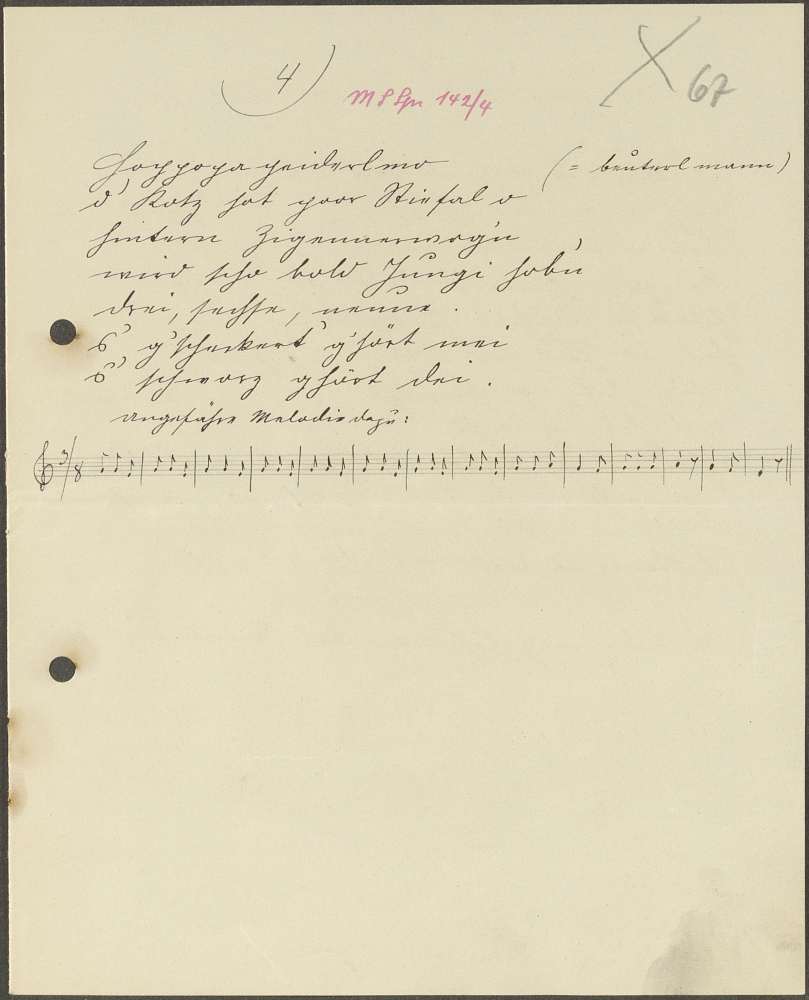 4)
142/4
67
Hoppopa peiderlmo (= beuterlmann)
d' Kotz hot poor Stiefal o
hintern Zigeunerwog'n
wird scho bold Jungi hob'n
drei, sechse, neune.
s' g'scheckert' g'hört mei
s' schworz ghört dei.
ungefähre Melodie dazu:
3/8